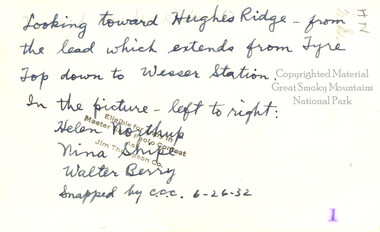 Looking toward Hughes Ridge - from
the lead which extends from Tyre
Top down to Wesser Station.
Copyrighted Material
Great Smoky Mountains
National Park
In the picture - left to right:
Helen Northup
Eligible for
Master Contest
Jim Thompson Co.
Nina Shipe
Walter Berry
Snapped by C.O.C. 6-26-32
1